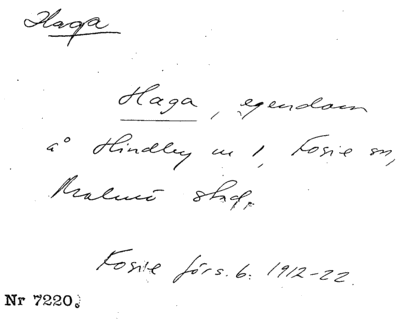 Haga
Haga, egendom
å Hindby nr 1, Fosie sn,
Malmö stad.
Fosie förs.b. 1912-22.
Nr 7220.